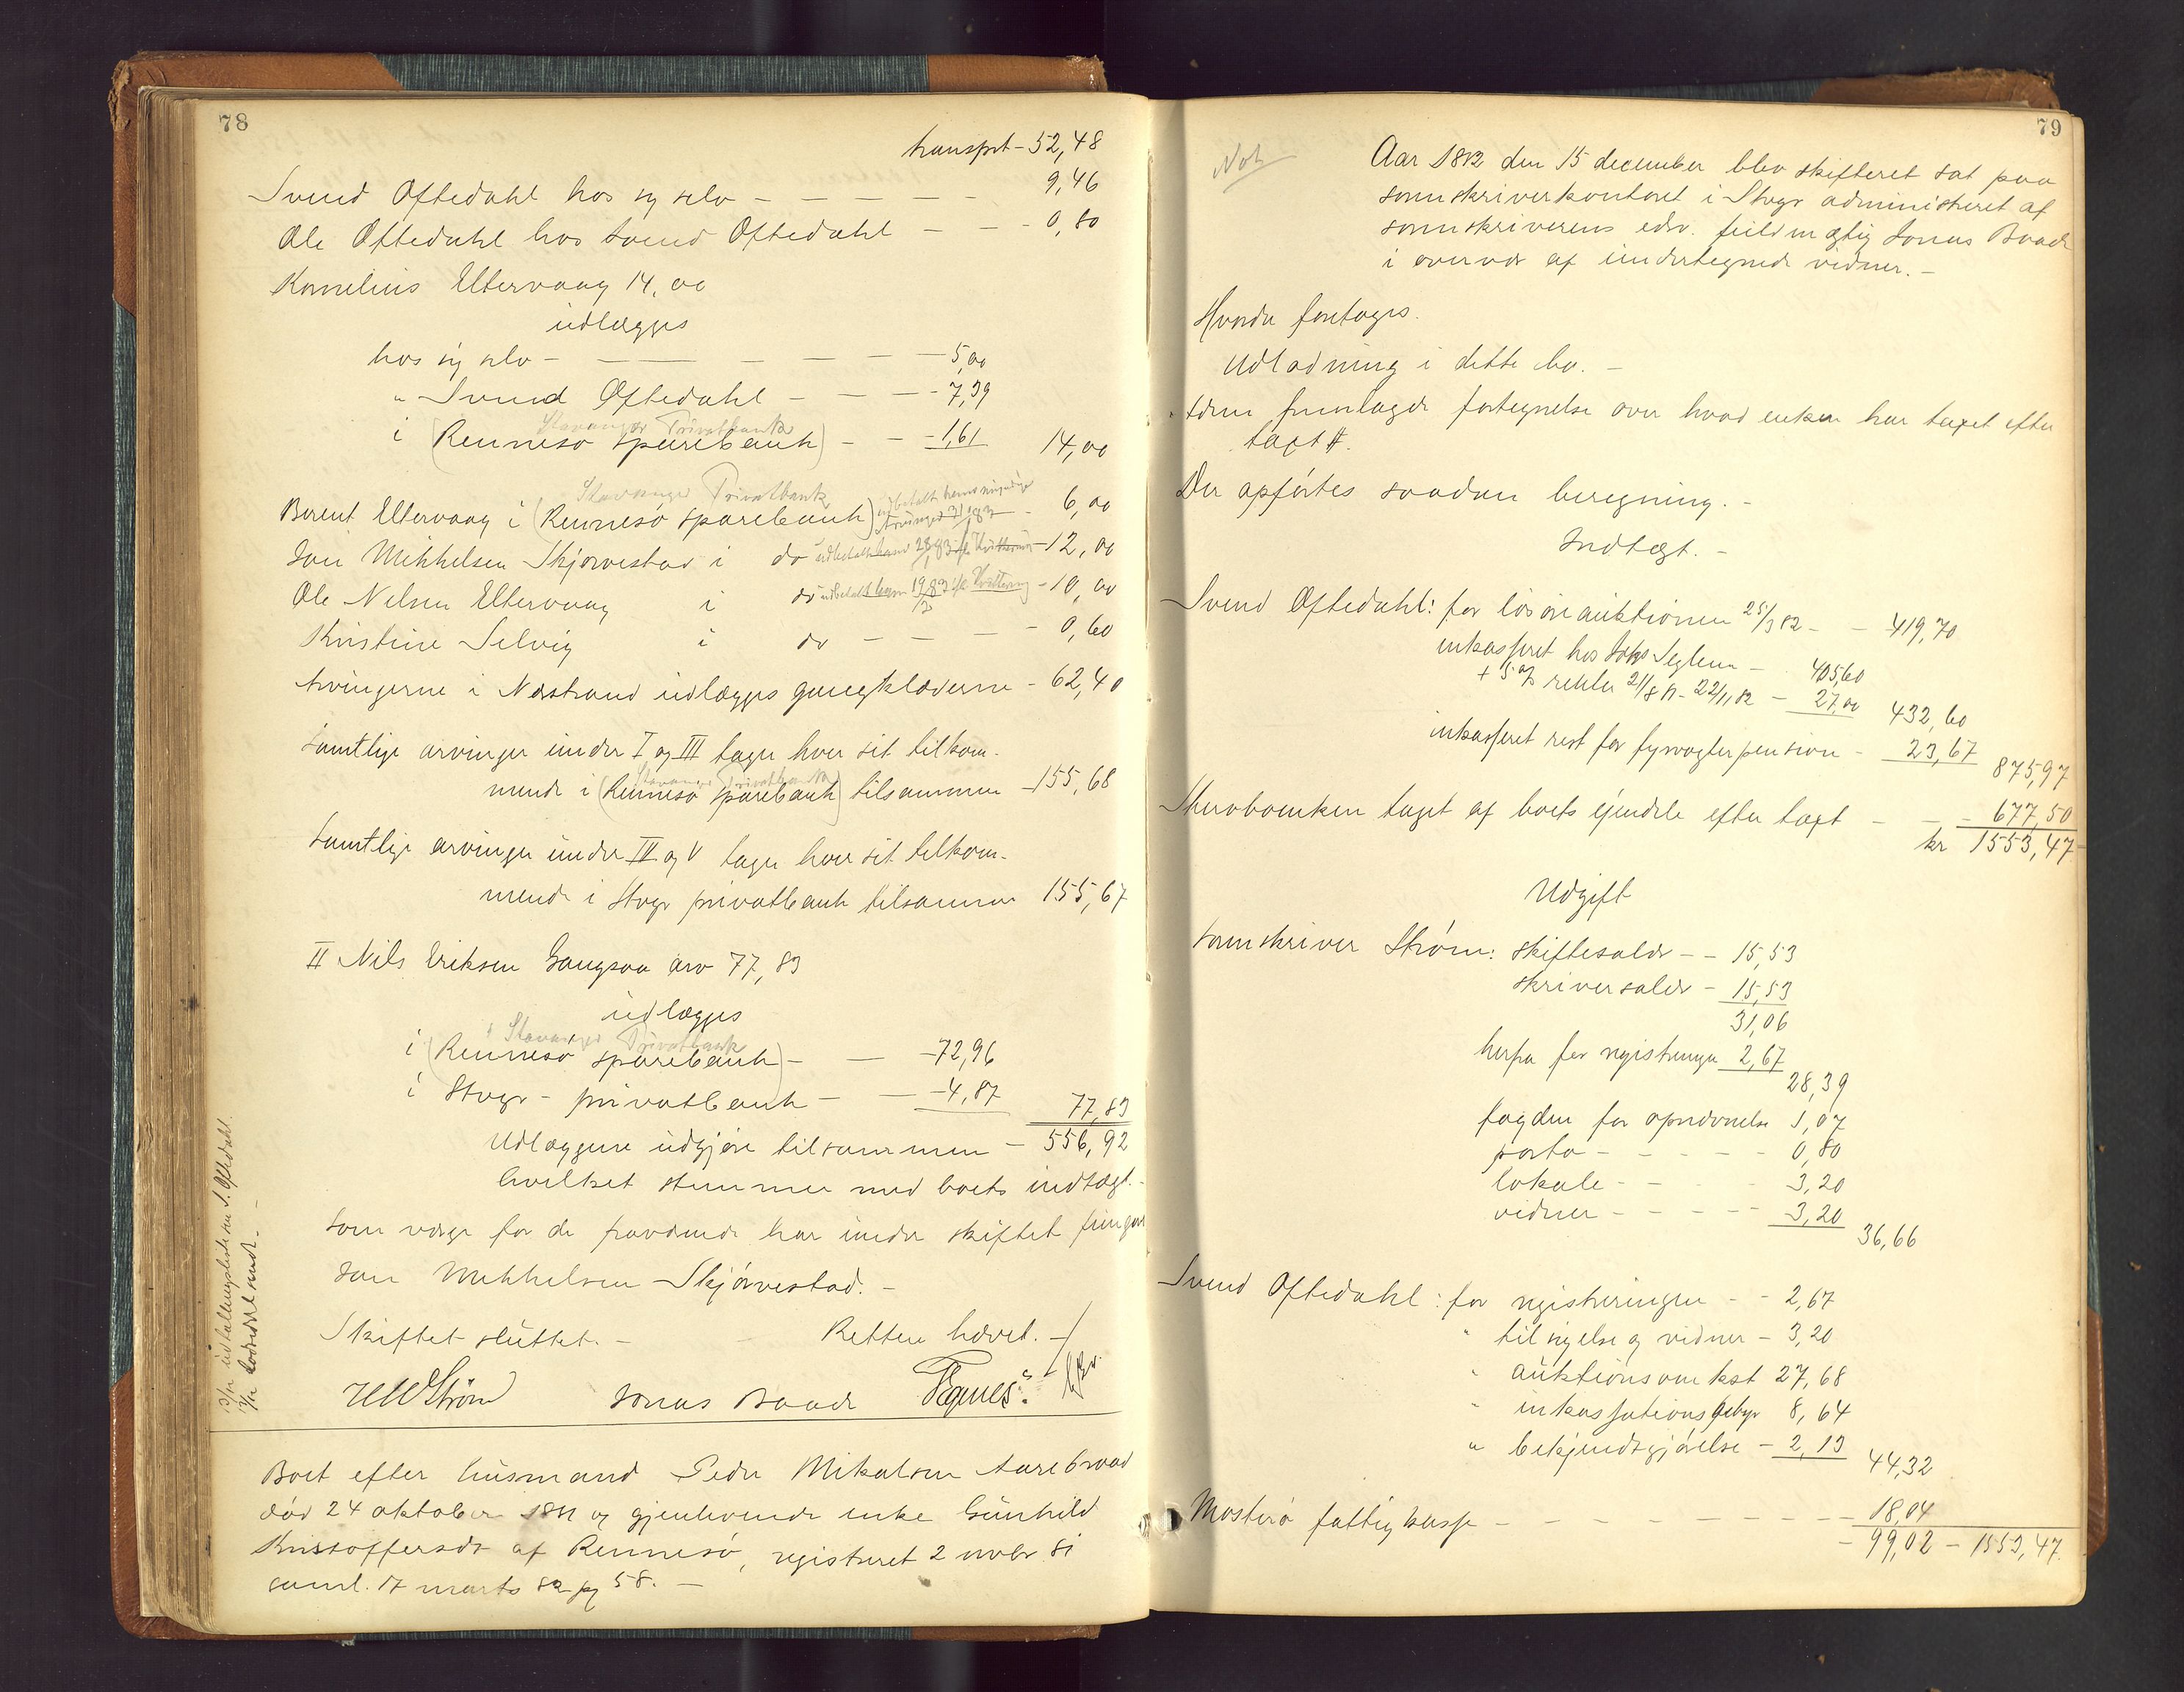 78
transprt - 52,48
Svend Oftedahl hos sig selv - - - - - 9,46
Ole Oftedahl hos Svend Oftedahl - - - 0,80
Kornelius Eltervaag 14,00
udlægges
hos sig selv - - - - - - 5,00
" Svend Oftedahl - - - - 7,39
Stavanger Privatbank
i (Rennesø sparebank) - - - 1,61 14,00
Stavanger Privatbank
Berent Eltervaag i (Rennesø sparebank) udbetalt - 6,00
Jon Mikkelsen Skjørvestad i do udbetalt ham kvittering - 12,00
Ole Nelsen Eltervaag i do udbetalt ham kvittering - 10,00
Kristine Selvig i do - - - - 0,60
Arvingerne i Nerstrand udlægges gangklæderne - 62,40
Samtlige arvinger under I og III tager hver sit tilkom-
Stavanger Privatbank
mende i (Rennesø sparebank) tilsammen - 155,68
Samtlige arvinger under IV og V tager hver sit tilkom-
mende i Stvgr privatbank tilsammen 155,67
II Nils Eriksen Gangsaa arv 77,83
udlægges
i Stavanger Privatbank
i (Rennesø sparebank) - - - 72,96
i Stvgr - privatbank - - - 4,87 77,83
Udlæggene udgjøre tilsammen - 556,92
hvilket stemmer med boets indtægt. -
Som værge for de fraværende har under skiftet fungeret
Jon Mikkelsen Skjørvestad. -
Skiftet sluttet. - Retten hævet. -
Strøm Jonas Baade
13/12 udstallingslisten S. Oftedahl.
Boet efter husmand Peder Mikalsen Aarebraad
død 24 oktober 1881 og gjenlevende enke Gunhild
Kristoffersdr af Rennesø, registreret 2 novbr 81
saml. 17 marts 82 pg 58. -
79
Not
Aar 1882 den 15 december blev skifteret sat paa
sorenskriverkontoret i Stvgr administreret af
sorenskriverens edsv. fuldmægtig Jonas Baade
i overvær af undertegnede vidner. -
Hvorda foretoges.
Udlodning i dette bo. -
Idren fremlagde fortegnelse over hvad enken har taget efter
taxt #.
Der opførtes saadan beregning. -
Indtægt. -
Svend Oftedahl: for løsøreauktionen 25/3 82 - - 419,70
inkasseret hos Seglem - 405,60
+ 5 % renter 21/8 81 - 22/11 82 - 27,00 432,60
inkasseret rest for fyrvogterpension - 23,67 875,97
Skrevboenken taget af boets ejendele efter taxt - - - 677,50
kr 1553,47
Udgift
Sorenskriver Strøm: skiftesalær - - 15,53
skriversalær - 15,53
31,06
herfra for registrering 2,67
28,39
fogden for opnævnelse 1,07
porto - - - - - 0,80
lokale - - - - 3,20
vidner - - - - - 3,20 36,66
Svend Oftedahl: for registreringen - - 2,67
" tilsigelse og vidner - 3,20
" auktionsomkost 27,68
" inkassationsgebyr 8,64
" bekjendtgjørelse - 2,13 44,32
Mosterø fattigkasse - - - - - - - - 18,04
- 99,02 - 1553,47